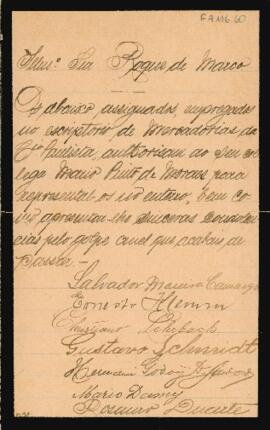 FAM6.60
Illmo. Snr. Roque de Marco
Os abaixo assignados, empregados
no escriptorio de Mercadorias da
Cia Paulista, authorisam ao seu col
lega Mario Pinto de Moraes para
represental os no enterro, bem co
mo apresentar-lhe sinceras condolen
cias pelo golpe cruel que acabais de
passar.
Salvador
Ernesto Klemm
Gustavo Schmidt
Hermani Godoy
Mario Damy
Duarte